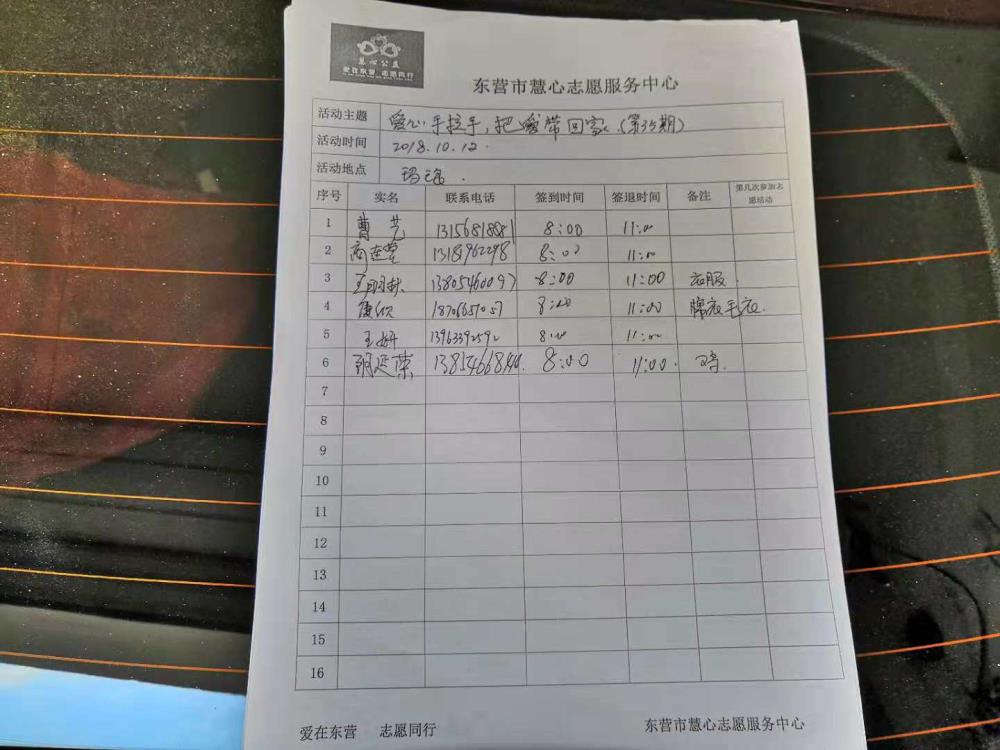 慧心公益
爱在东营 志愿同行
东营市慧心志愿服务中心
活动主题 爱心手拉手,把爱带回家(第35期)
活动时间 2018.10.12.
活动地点
序号 实名 联系电话 签到时间 签退时间 备注 第几次参加志愿活动
1 曹艺 13156818881 8:00 11:00
2 13181962298 8:00 11:00
3 13805460097 8:00 11:00 衣服
4 18706651057 8:00 11:00 棉衣毛衣
5 王妍 13963392592 8:00 11:00
6 8:00 11:00
7
8
9
10
11
12
13
14
15
16
爱在东营 志愿同行 东营市慧心志愿服务中心